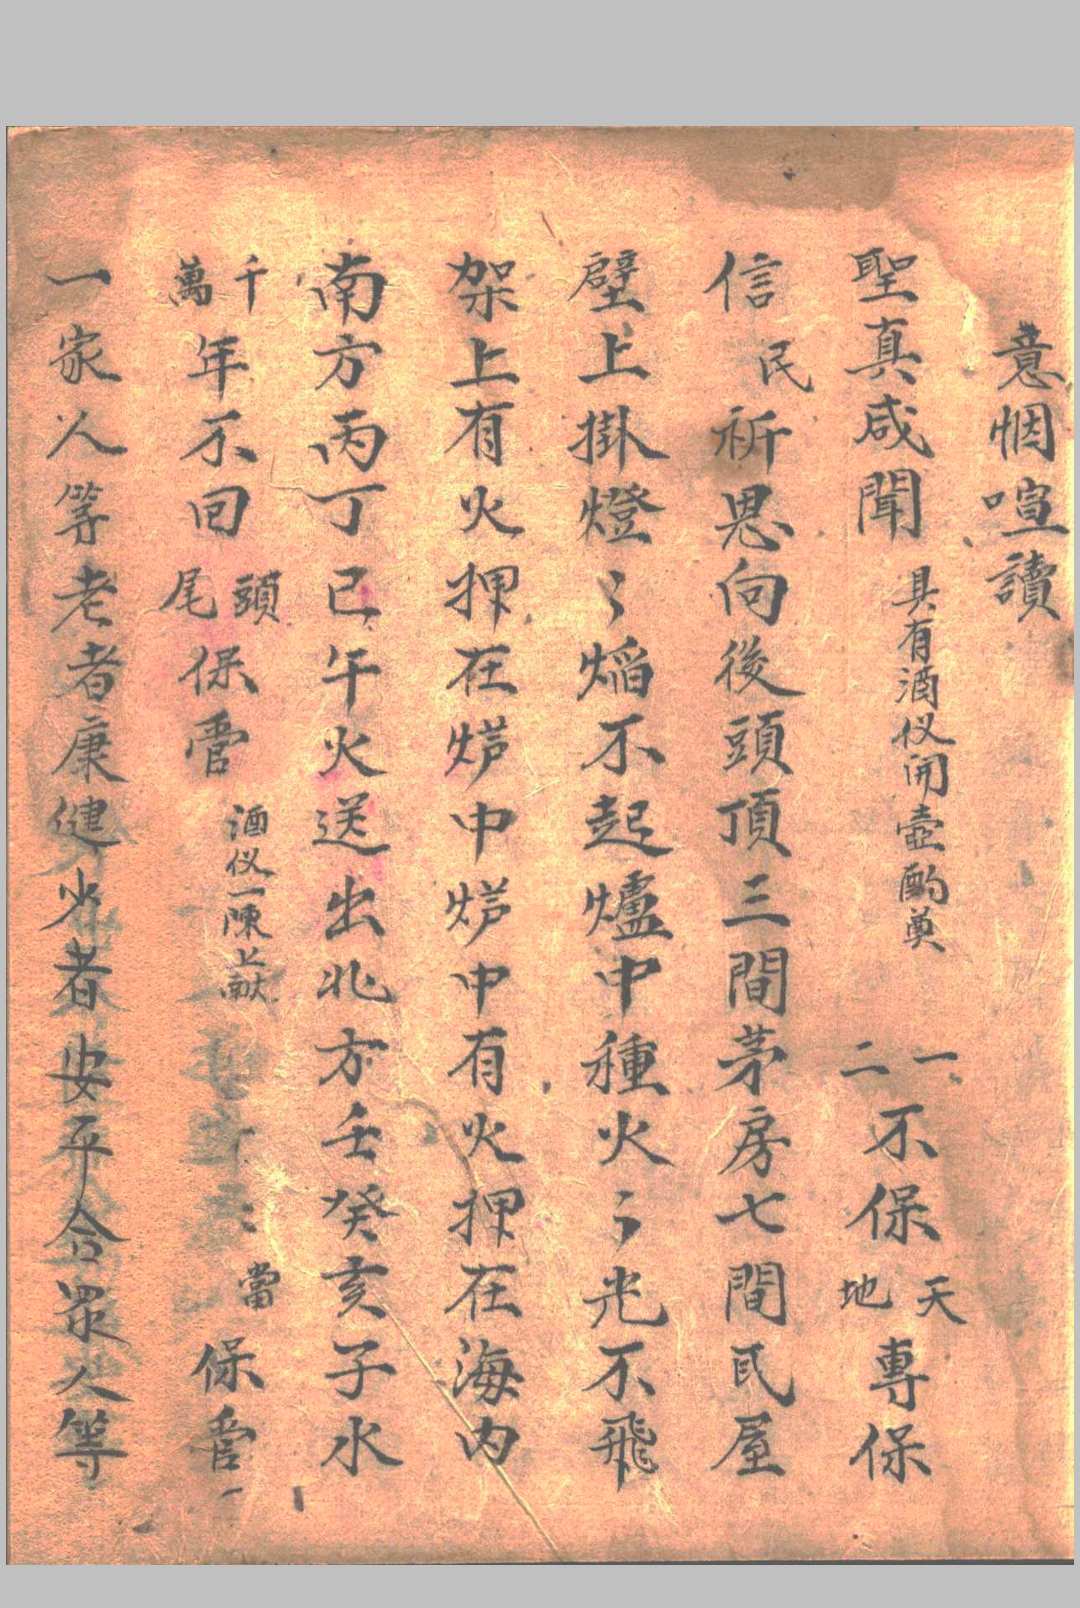 意悃喧讀
聖真咸聞 具有酒仪開壺酌奠 一二不保天地專保
信民祈恩向後頭頂三間茅房七間民屋
壁上掛燈〻焔不起爐中種火〻光不飛
架上有火押在炉中炉中有火押在海内
南方丙丁已午火送出北方壬癸亥子水
千萬年不回頭尾保管 酒仪一陳上献 當保管
一家人等老者康健少者安平合眾人等